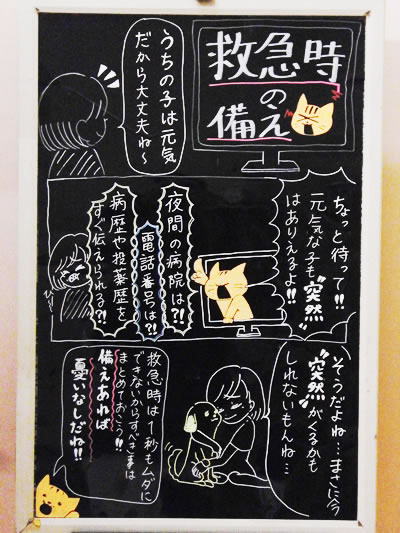 救急時
の
備え
うちの子は元気
だから大丈夫ね〜
ちょっと待って!!
元気な子も"突然"
はありえるよ!!
夜間の病院は?!
電話番号は?!
病歴や投薬歴を
すぐ伝えられる?!
そうだよね…まさに今
"突然"がくるかも
しれないもんね…
救急時は1秒もムダに
できないからすべき事は
まとめておこう!!
備えあれば
憂いなしだね!!